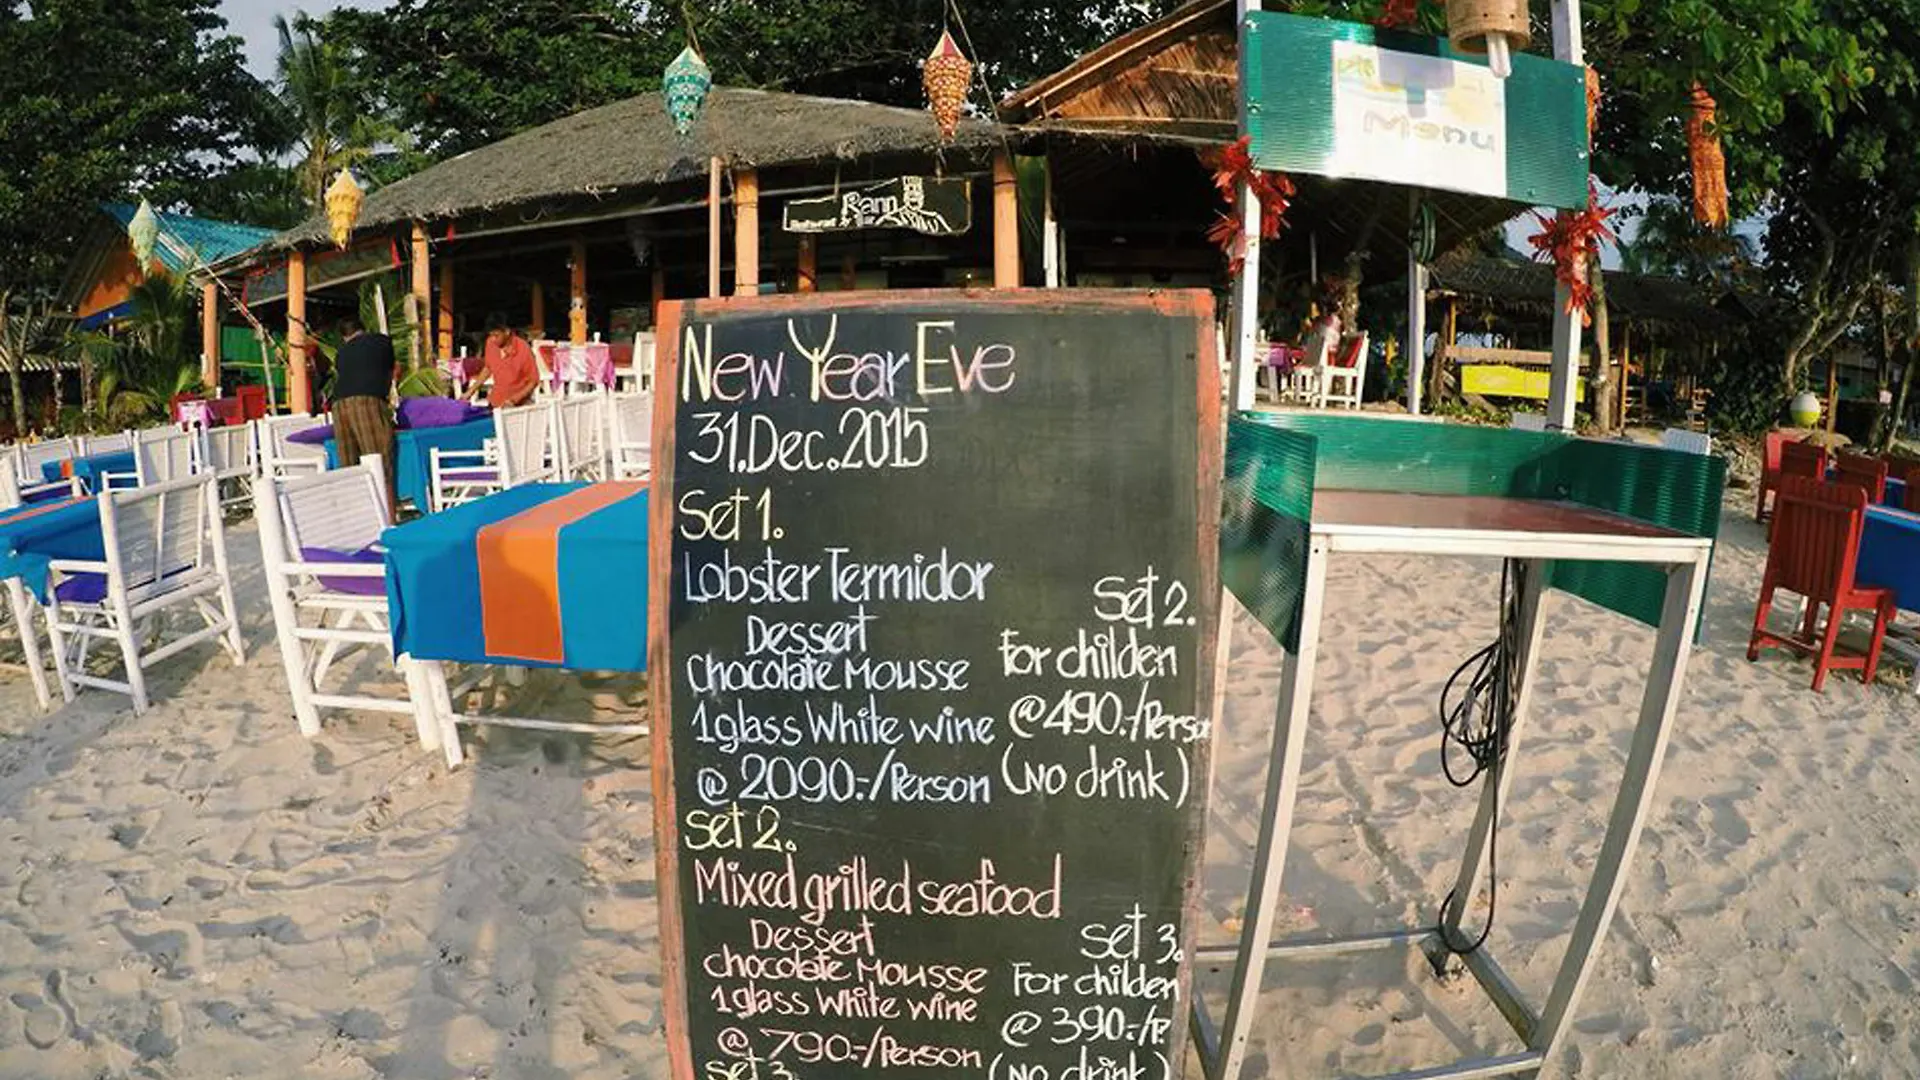 Menu
Rann
Restaurant & Bar
New Year Eve
31.Dec.2015
Set 1.
Lobster Termidor
Dessert
chocolate Mousse
1glass White wine
@ 2090.-/Person
Set 2.
For childen
@490.-/Person
(No drink)
Set 2.
Mixed grilled seafood
Dessert
chocolate Mousse
1glass White wine
@ 790.-/Person
Set 3.
For childen
@ 390.-/P.
(No drink)
Set 3.